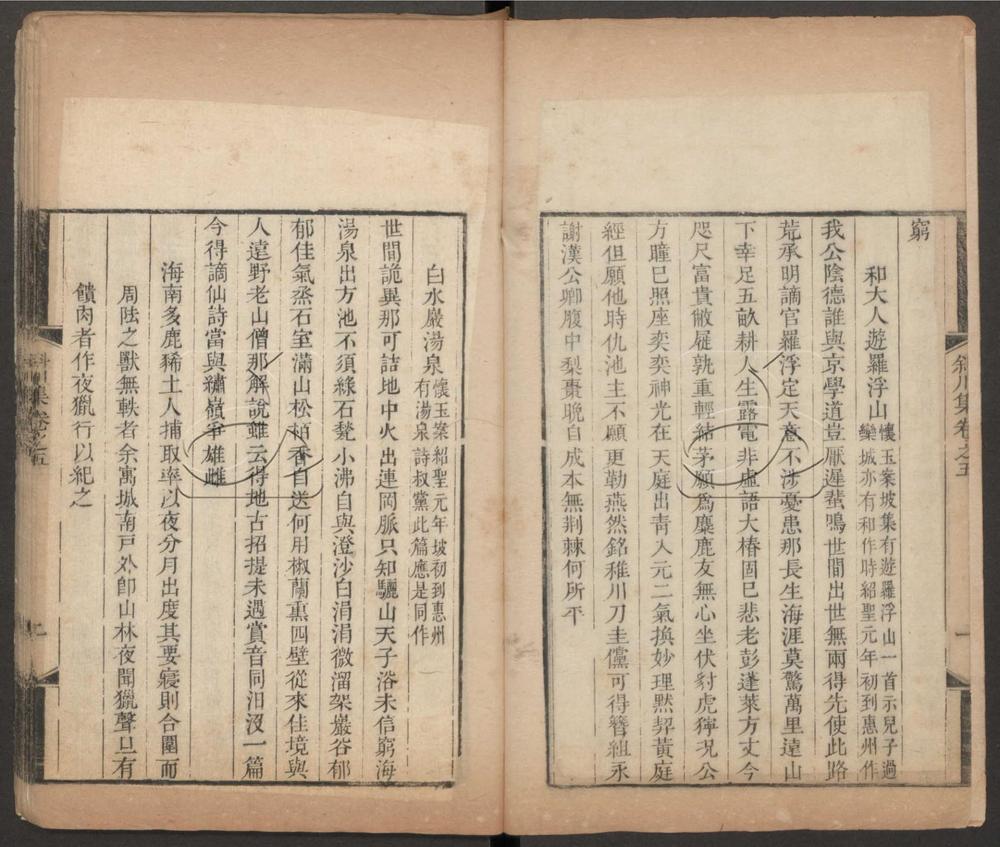 窮
和大人遊羅浮山
懷玉案坡集有遊羅浮山一首示兒子過
欒城亦有和作時紹聖元年初到惠州作
我公陰德誰與京學道豈厭遲蜚鳴世間出世無兩得先使此路
荒承明謫官羅浮定天意不涉憂患那長生海涯莫驚萬里遠山
下幸足五畝耕人生露電非虛語大椿固已悲老彭蓬萊方丈今
咫尺富貴敝屣孰重輕結茅願爲麋鹿友無心坐伏豺虎獰况公
方瞳已照座奕奕神光在天庭出靑入元二氣換妙理默契黃庭
經但願他時仇池主不願更勒燕然銘稚川刀圭儻可得簪組永
謝漢公卿腹中梨棗晚自成本無荆棘何所平
斜川集卷之五
一
白水巖湯泉
懷玉案紹聖元年坡初到惠州
有湯泉詩叔黨此篇應是同作
世間詭異那可詰地中火出連岡脈只知驪山天子浴未信窮海
湯泉出方池不須緣石甃小沸自與澄沙白涓涓微溜架巖谷郁
郁佳氣烝石室滿山松栢香自送何用椒蘭熏四壁從來佳境與
人遠野老山僧那解說雖云得地古招提未遇賞音同汩沒一篇
今得謫仙詩當與繡嶺爭雄雌
海南多鹿豨土人捕取率以夜分月出度其要寢則合圍而
周阹之獸無軼者余寓城南戸外卽山林夜聞獵聲旦有
饋肉者作夜獵行以紀之
斜川集卷之五